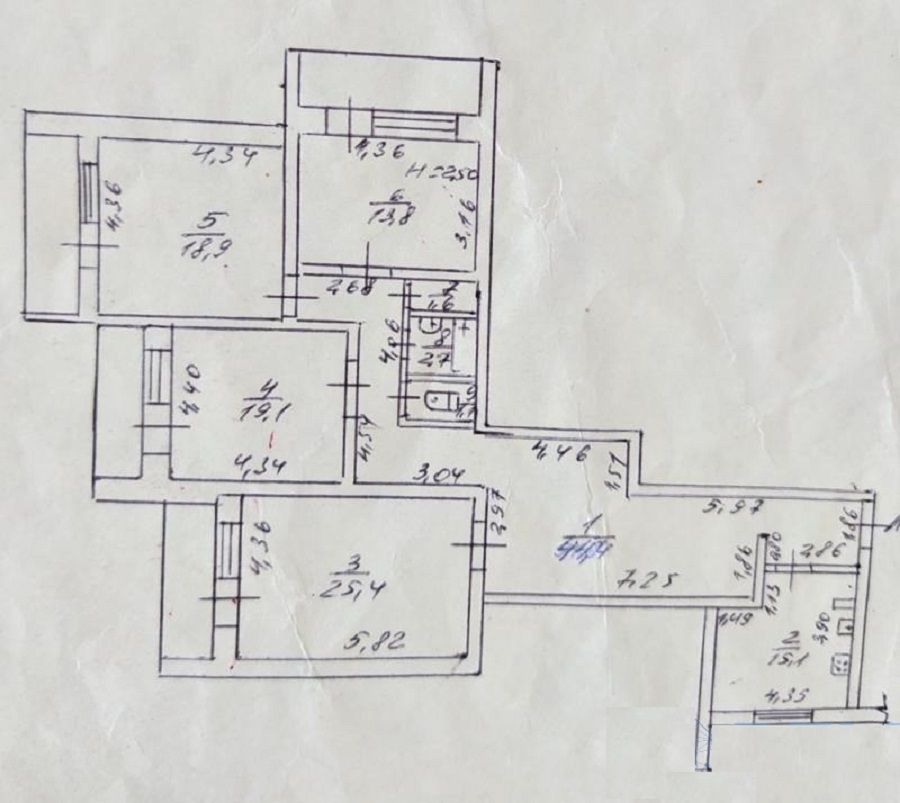 4,34
4,36
5
18,9
4,36
H=2,50
6
13,8
3,16
2,68
7
1,6
8
2,7
4,06
4,40
4
19,1
4,34
4,54
3,04
4,46
1,51
5,97
1,86
2,97
1
7,25
1,86
0,80
2,86
1,13
4,36
3
25,4
5,82
1,49
3,90
2
15,1
4,35